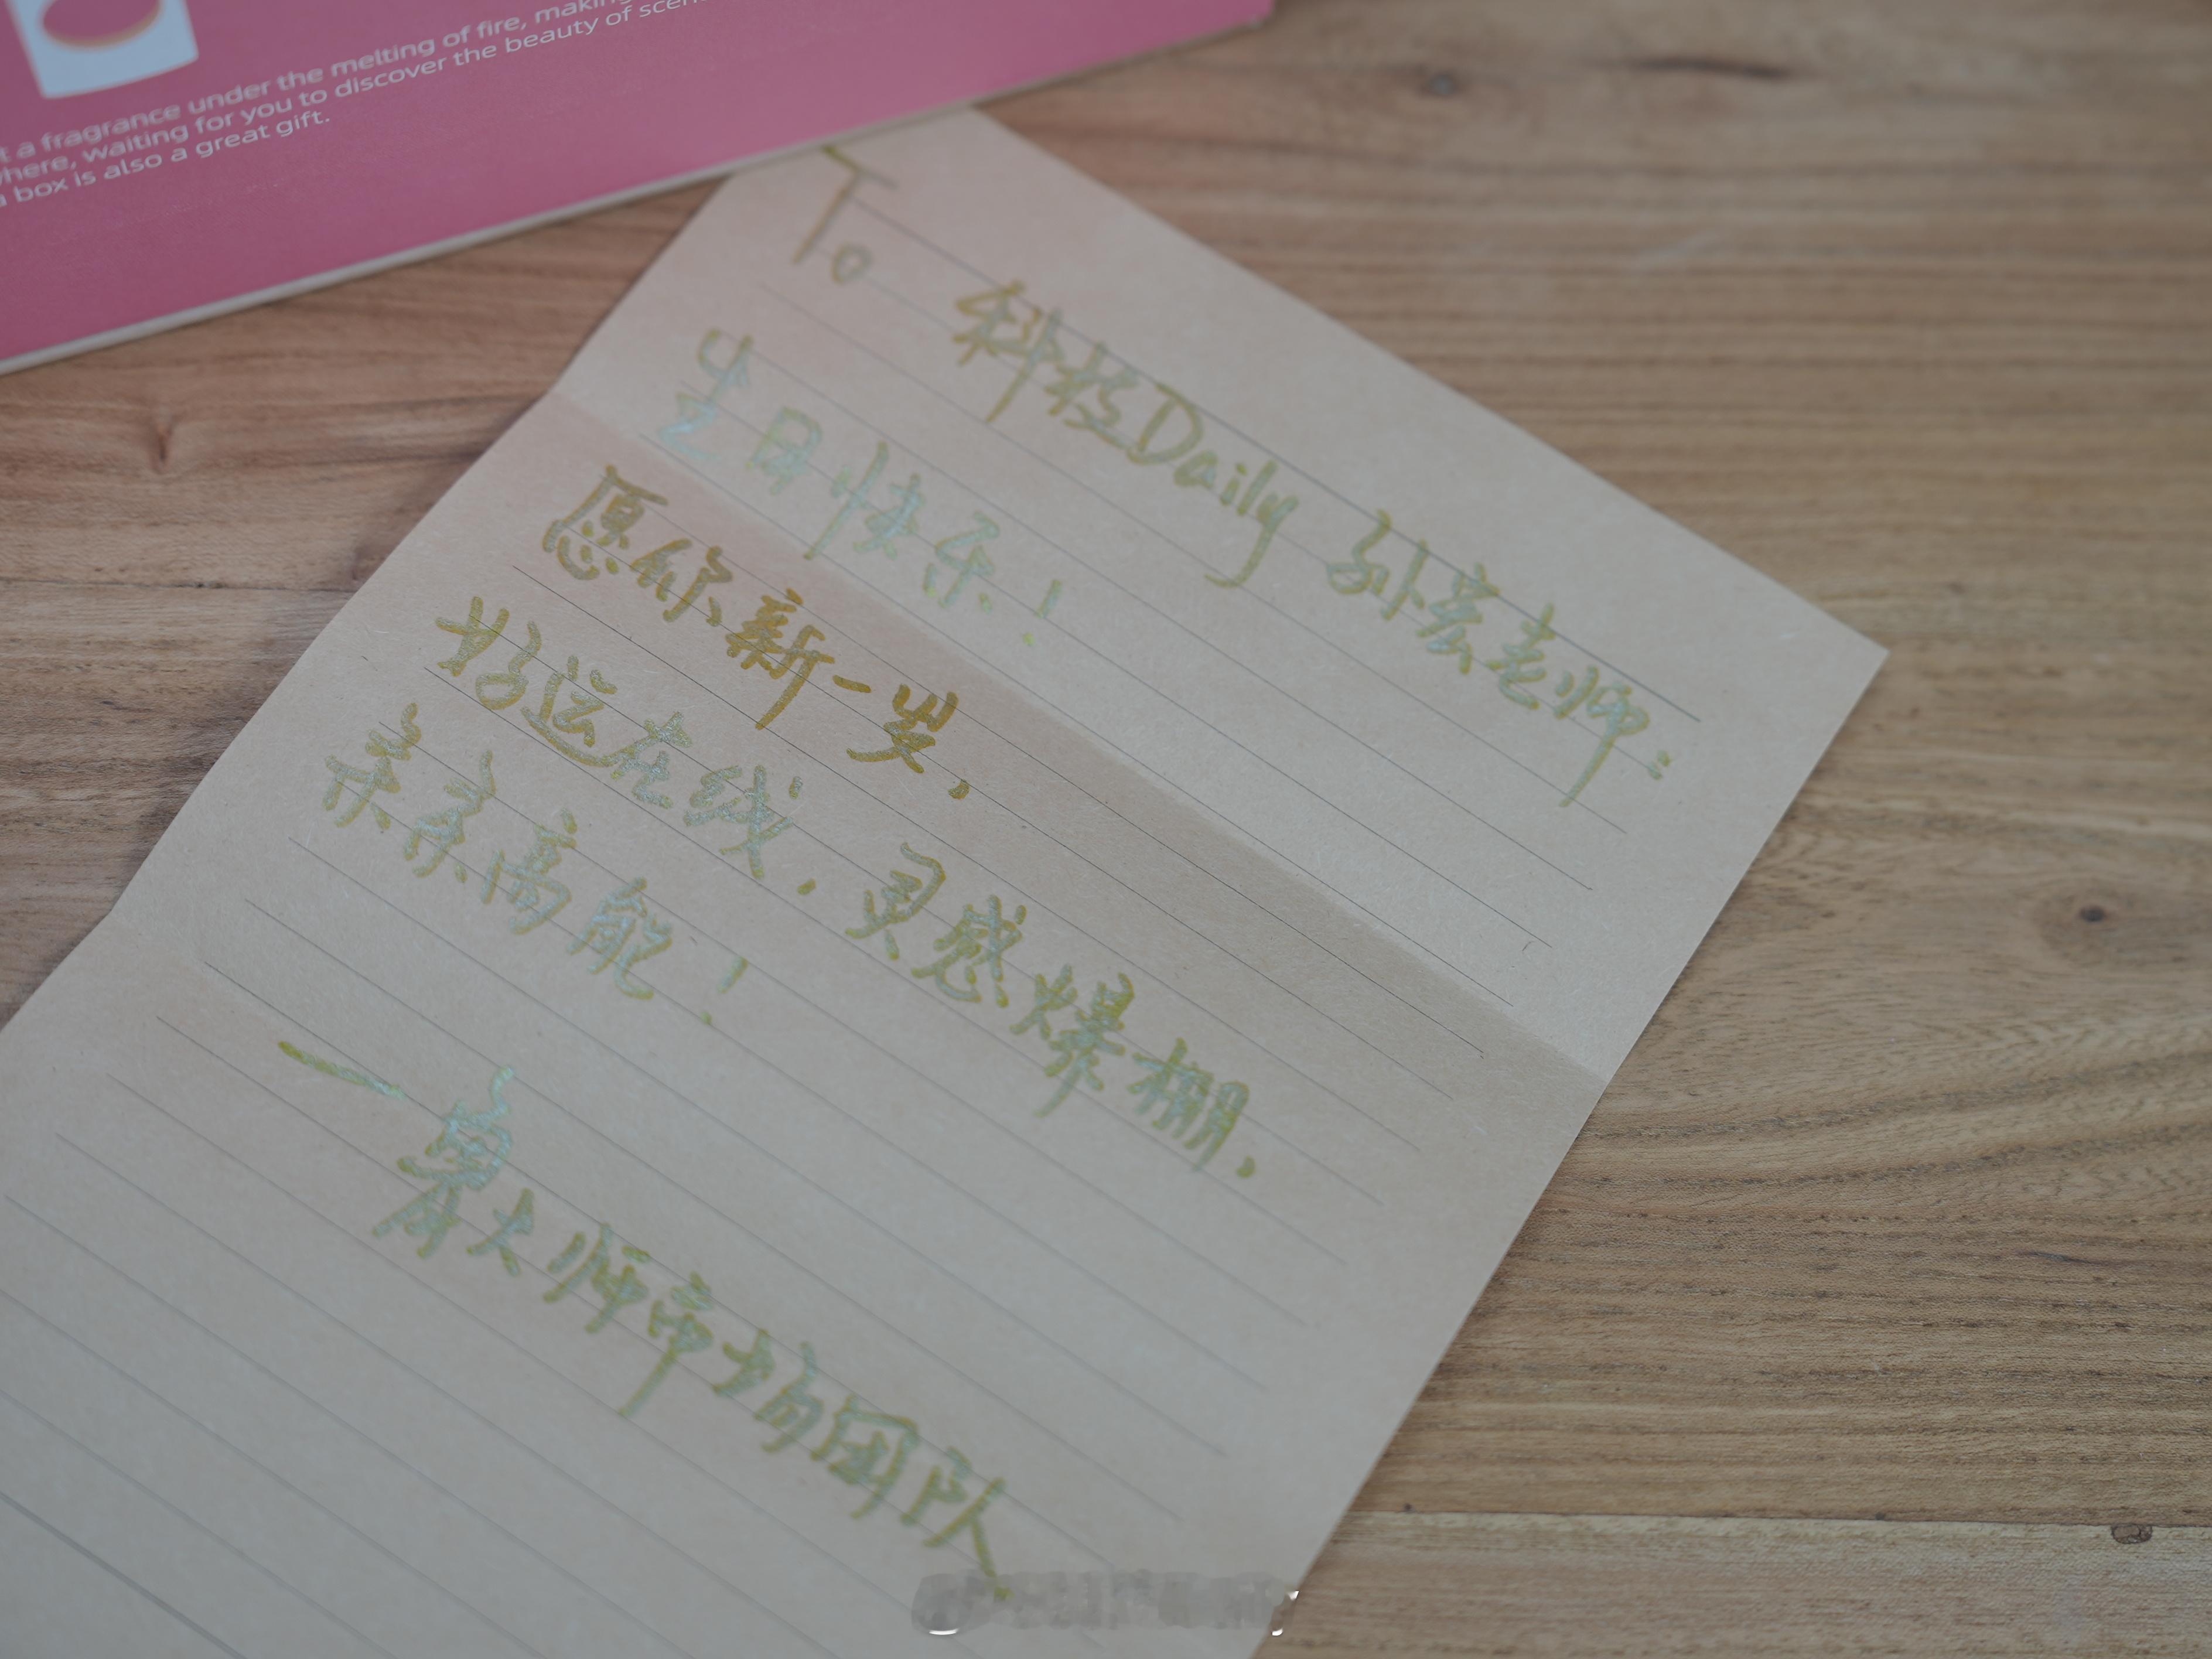 t a fragrance under the melting of fire, making
where, waiting for you to discover the beauty of scen
a box is also a great gift.
To 科技Daily 孙宏老师:
生日快乐!
愿你新一岁,
好运在线,灵感爆棚,
条条高能!
—鲁大师市场团队